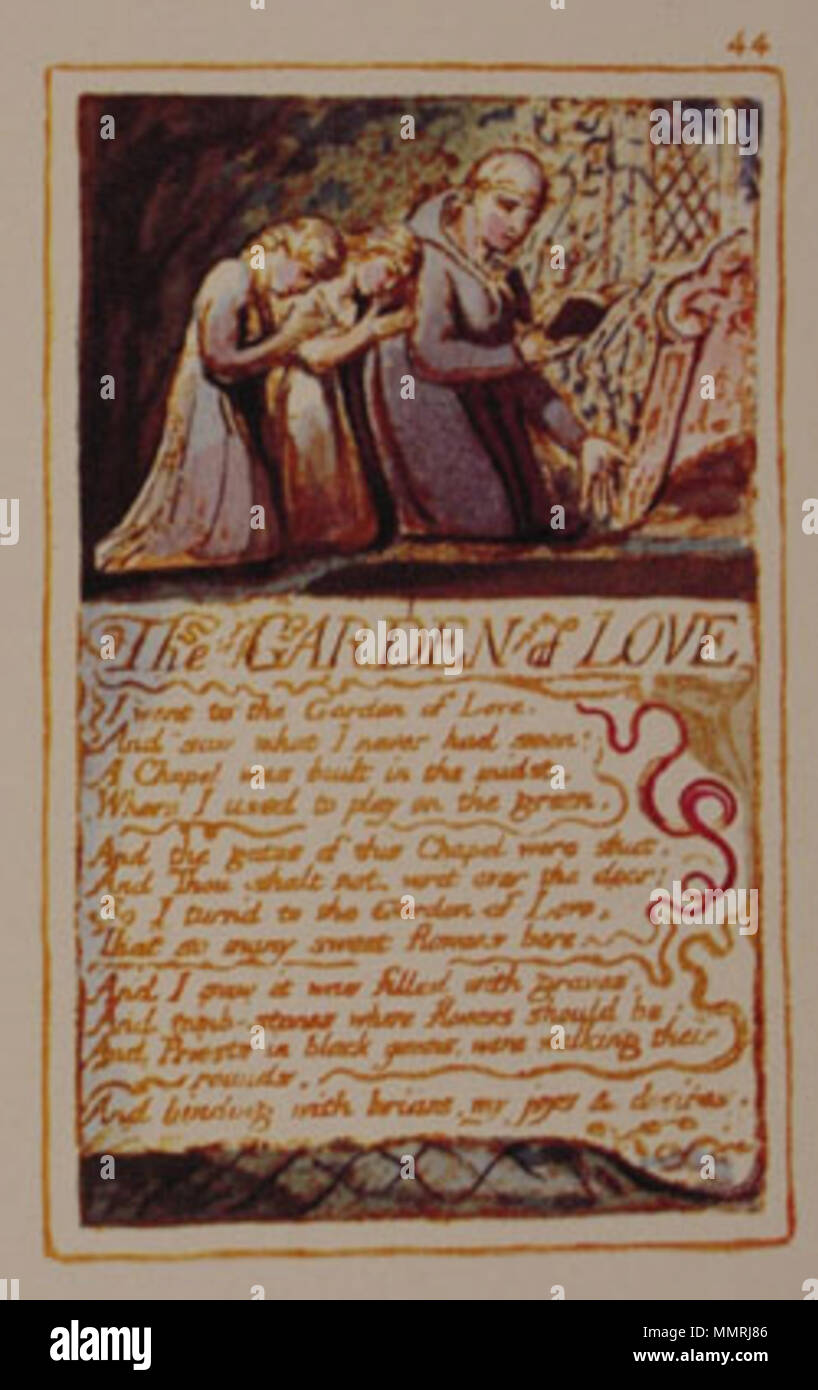 44
The GARDEN of LOVE
I went to the Garden of Love.
And saw what I never had seen:
A Chapel was built in the midst,
Where I used to play on the green.
And the gates of this Chapel were shut,
And Thou shalt not. writ over the door;
So I turn'd to the Garden of Love,
That so many sweet flowers bore.
And I saw it was filled with graves,
And tomb-stones where flowers should be:
And Priests in black gowns, were walking their
rounds,
And binding with briars, my joys & desires.
alamy
alamy
Image ID: MMRJ86
www.alamy.com